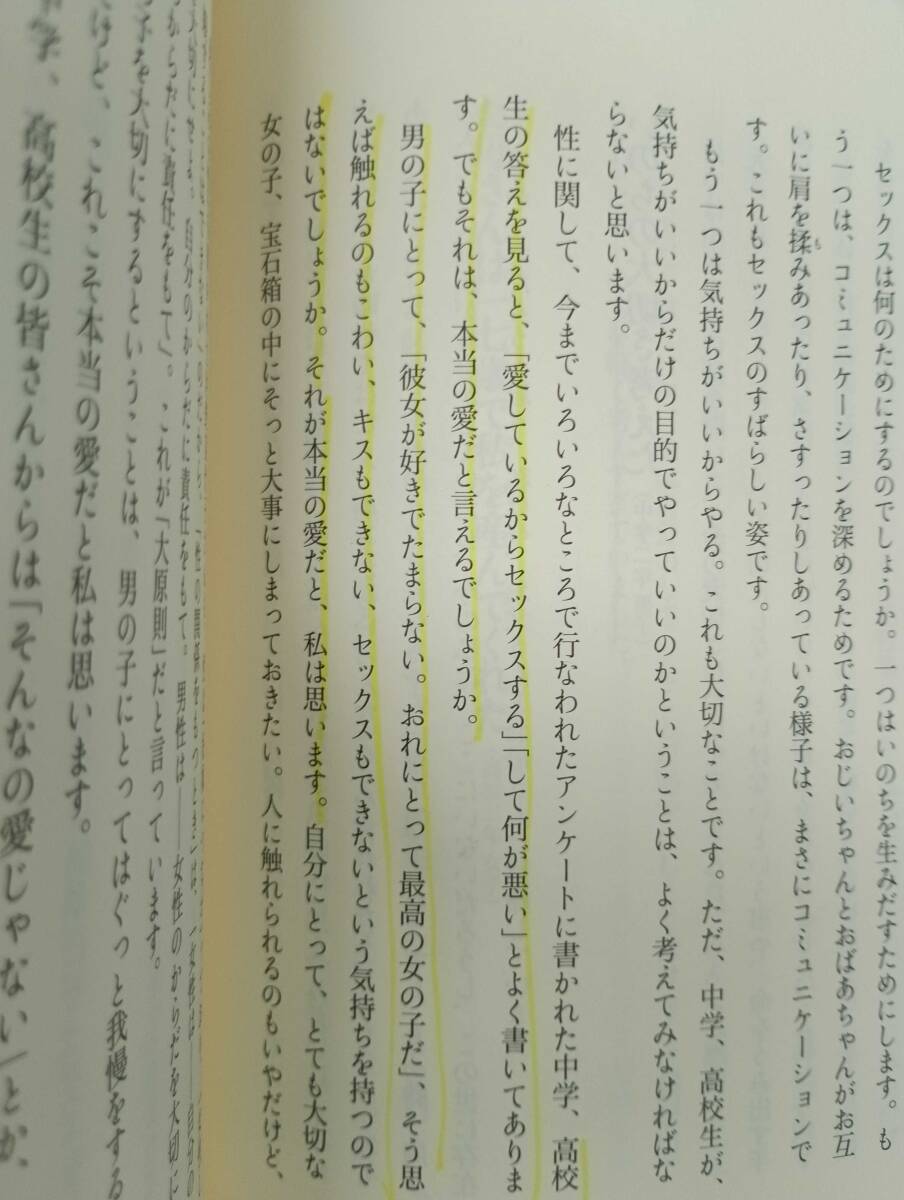 セックスは何のためにするのでしょうか。一つはいのちを生みだすためにします。も
う一つは、コミュニケーションを深めるためです。おじいちゃんとおばあちゃんがお互
いに肩を揉みあったり、さすったりしあっている様子は、まさにコミュニケーションで
す。これもセックスのすばらしい姿です。
もう一つは気持ちがいいからやる。これも大切なことです。ただ、中学、高校生が、
気持ちがいいからだけの目的でやっていいのかということは、よく考えてみなければな
らないと思います。
性に関して、今までいろいろなところで行なわれたアンケートに書かれた中学、高校
生の答えを見ると、「愛しているからセックスする」「して何が悪い」とよく書いてありま
す。でもそれは、本当の愛だと言えるでしょうか。
男の子にとって、「彼女が好きでたまらない。おれにとって最高の女の子だ」、そう思
えば触れるのもこわい、キスもできない、セックスもできないという気持ちを持つので
はないでしょうか。それが本当の愛だと、私は思います。自分にとって、とても大切な
女の子、宝石箱の中にそっと大事にしまっておきたい。人に触れられるのもいやだけど、
自分のからだに責任をもて。男性は——女性のからだを大切に
からだに責任をもて」。これが「大原則」だと言っています。
を大切にするということは、男の子にとってはぐっと我慢をする
けど、これこそ本当の愛だと私は思います。
学、高校生の皆さんからは「そんなの愛じゃない」とか、